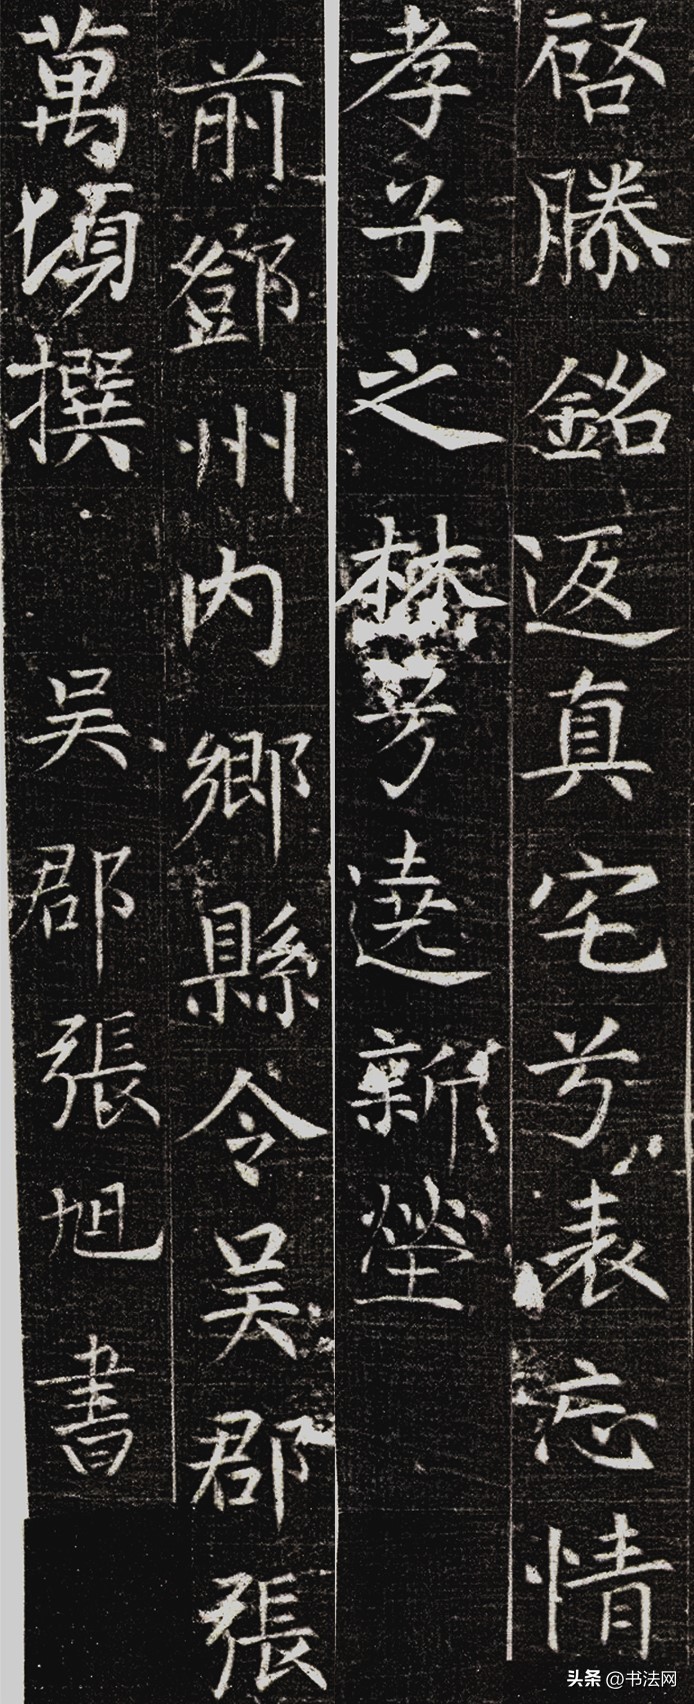 啓滕銘返真宅兮表忘情
孝子之林兮遶新塋
前鄧州内鄉縣令吴郡張
萬頃撰 吴郡張旭書
头条 @书法网